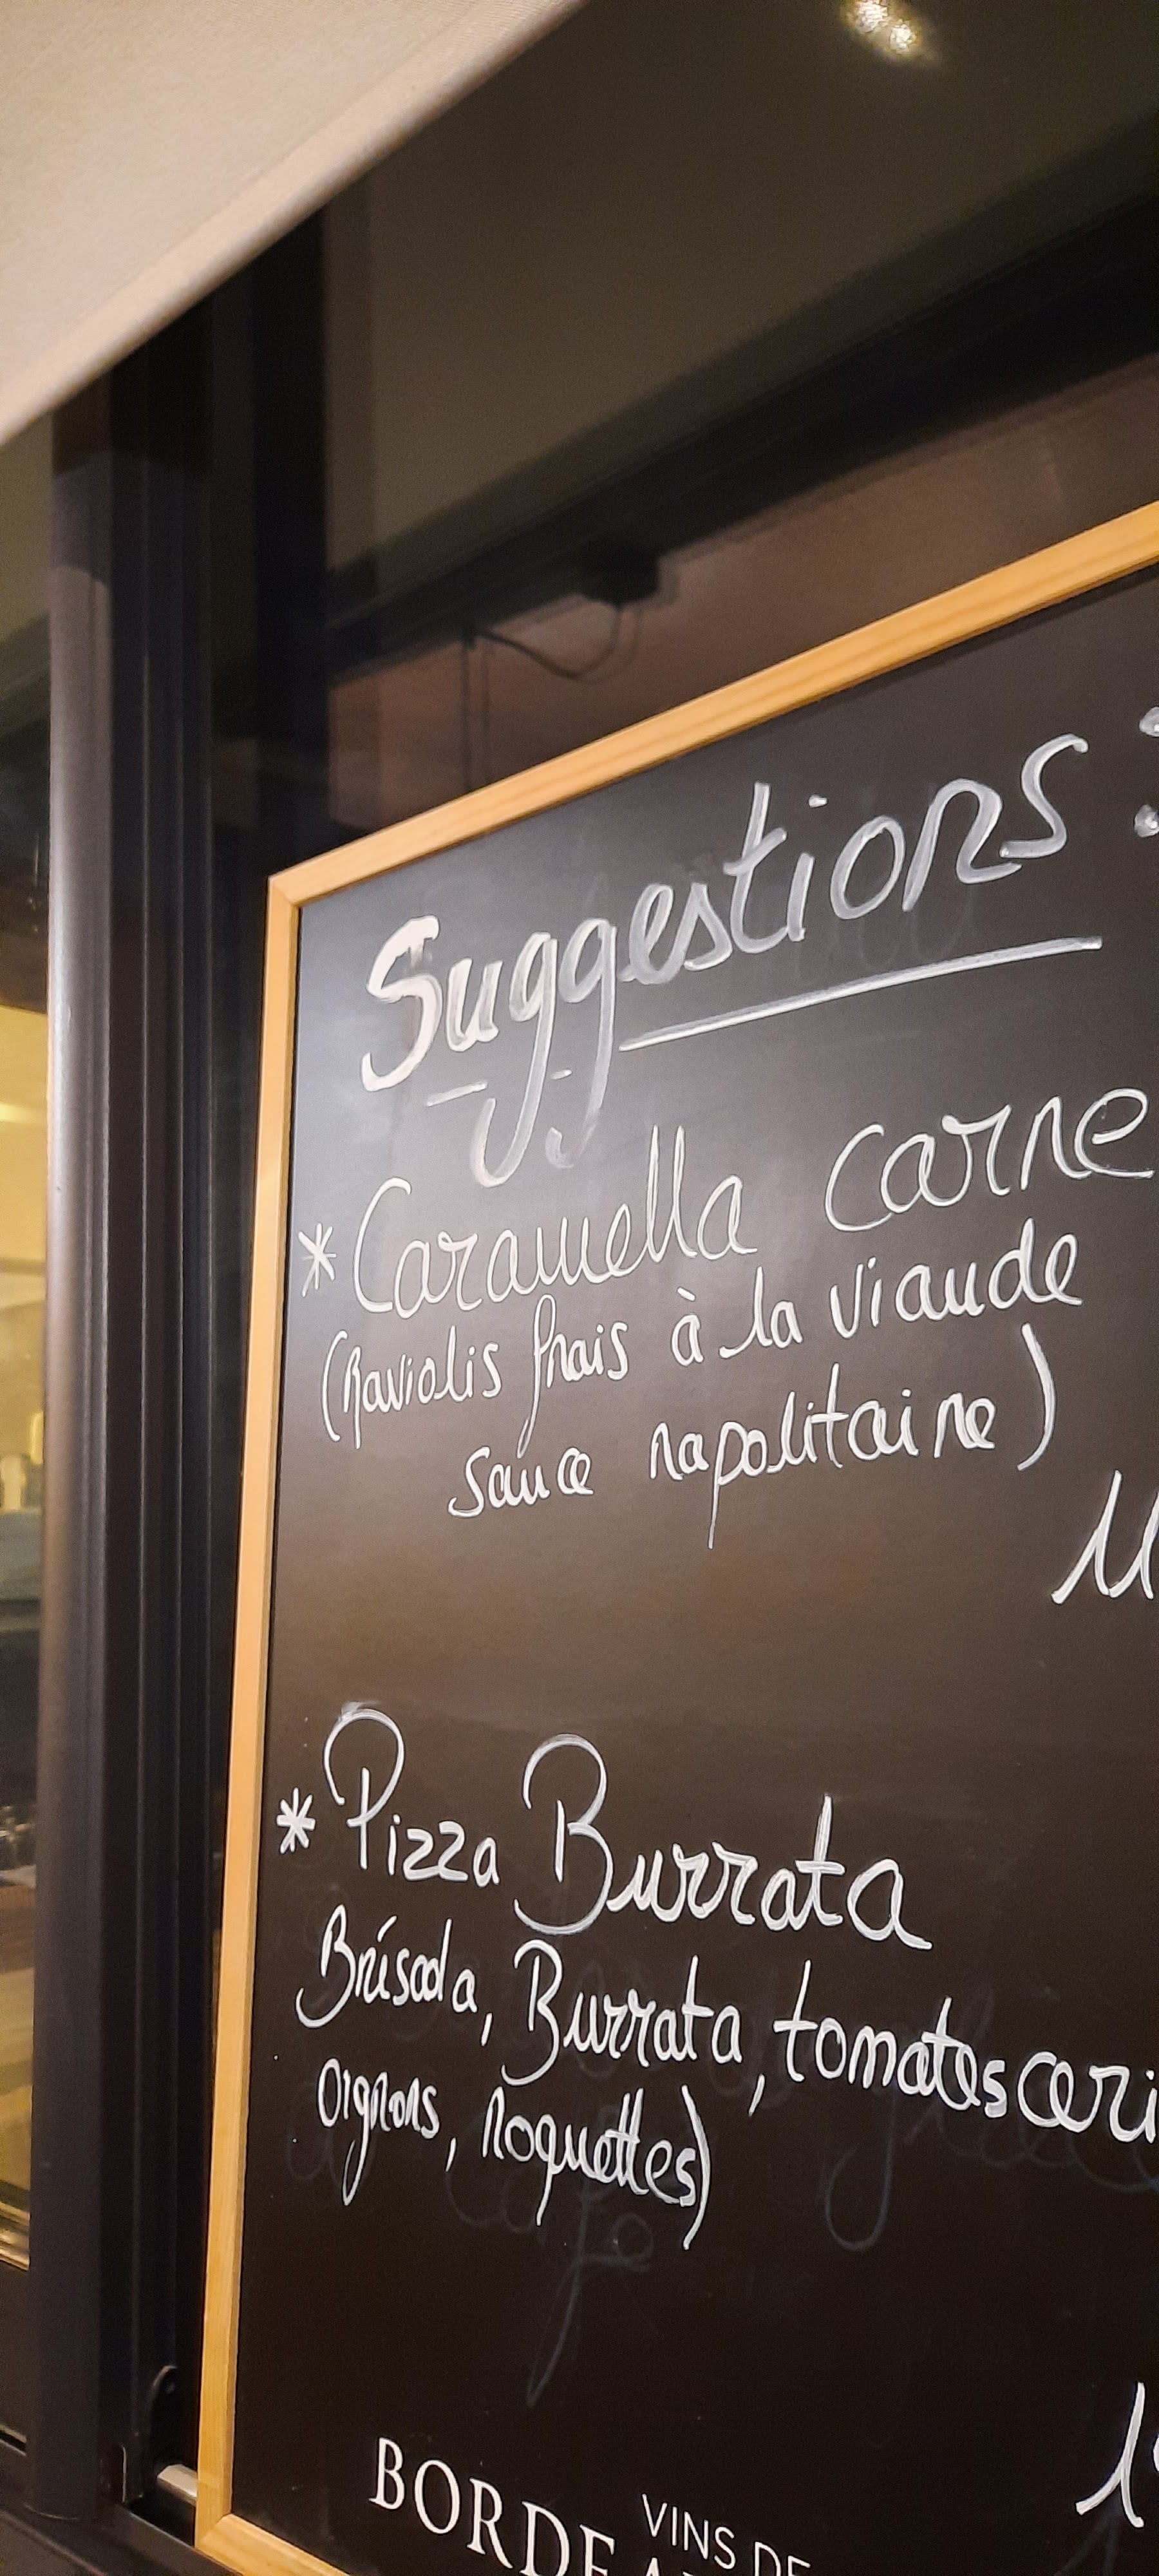 Suggestions :
* Caramella carne
(Raviolis frais à la viande
sauce napolitaine)
11
* Pizza Burrata
Brísaola, Burrata, tomates ceri
Oignons, Roquettes)
1
BORDE VINS DE